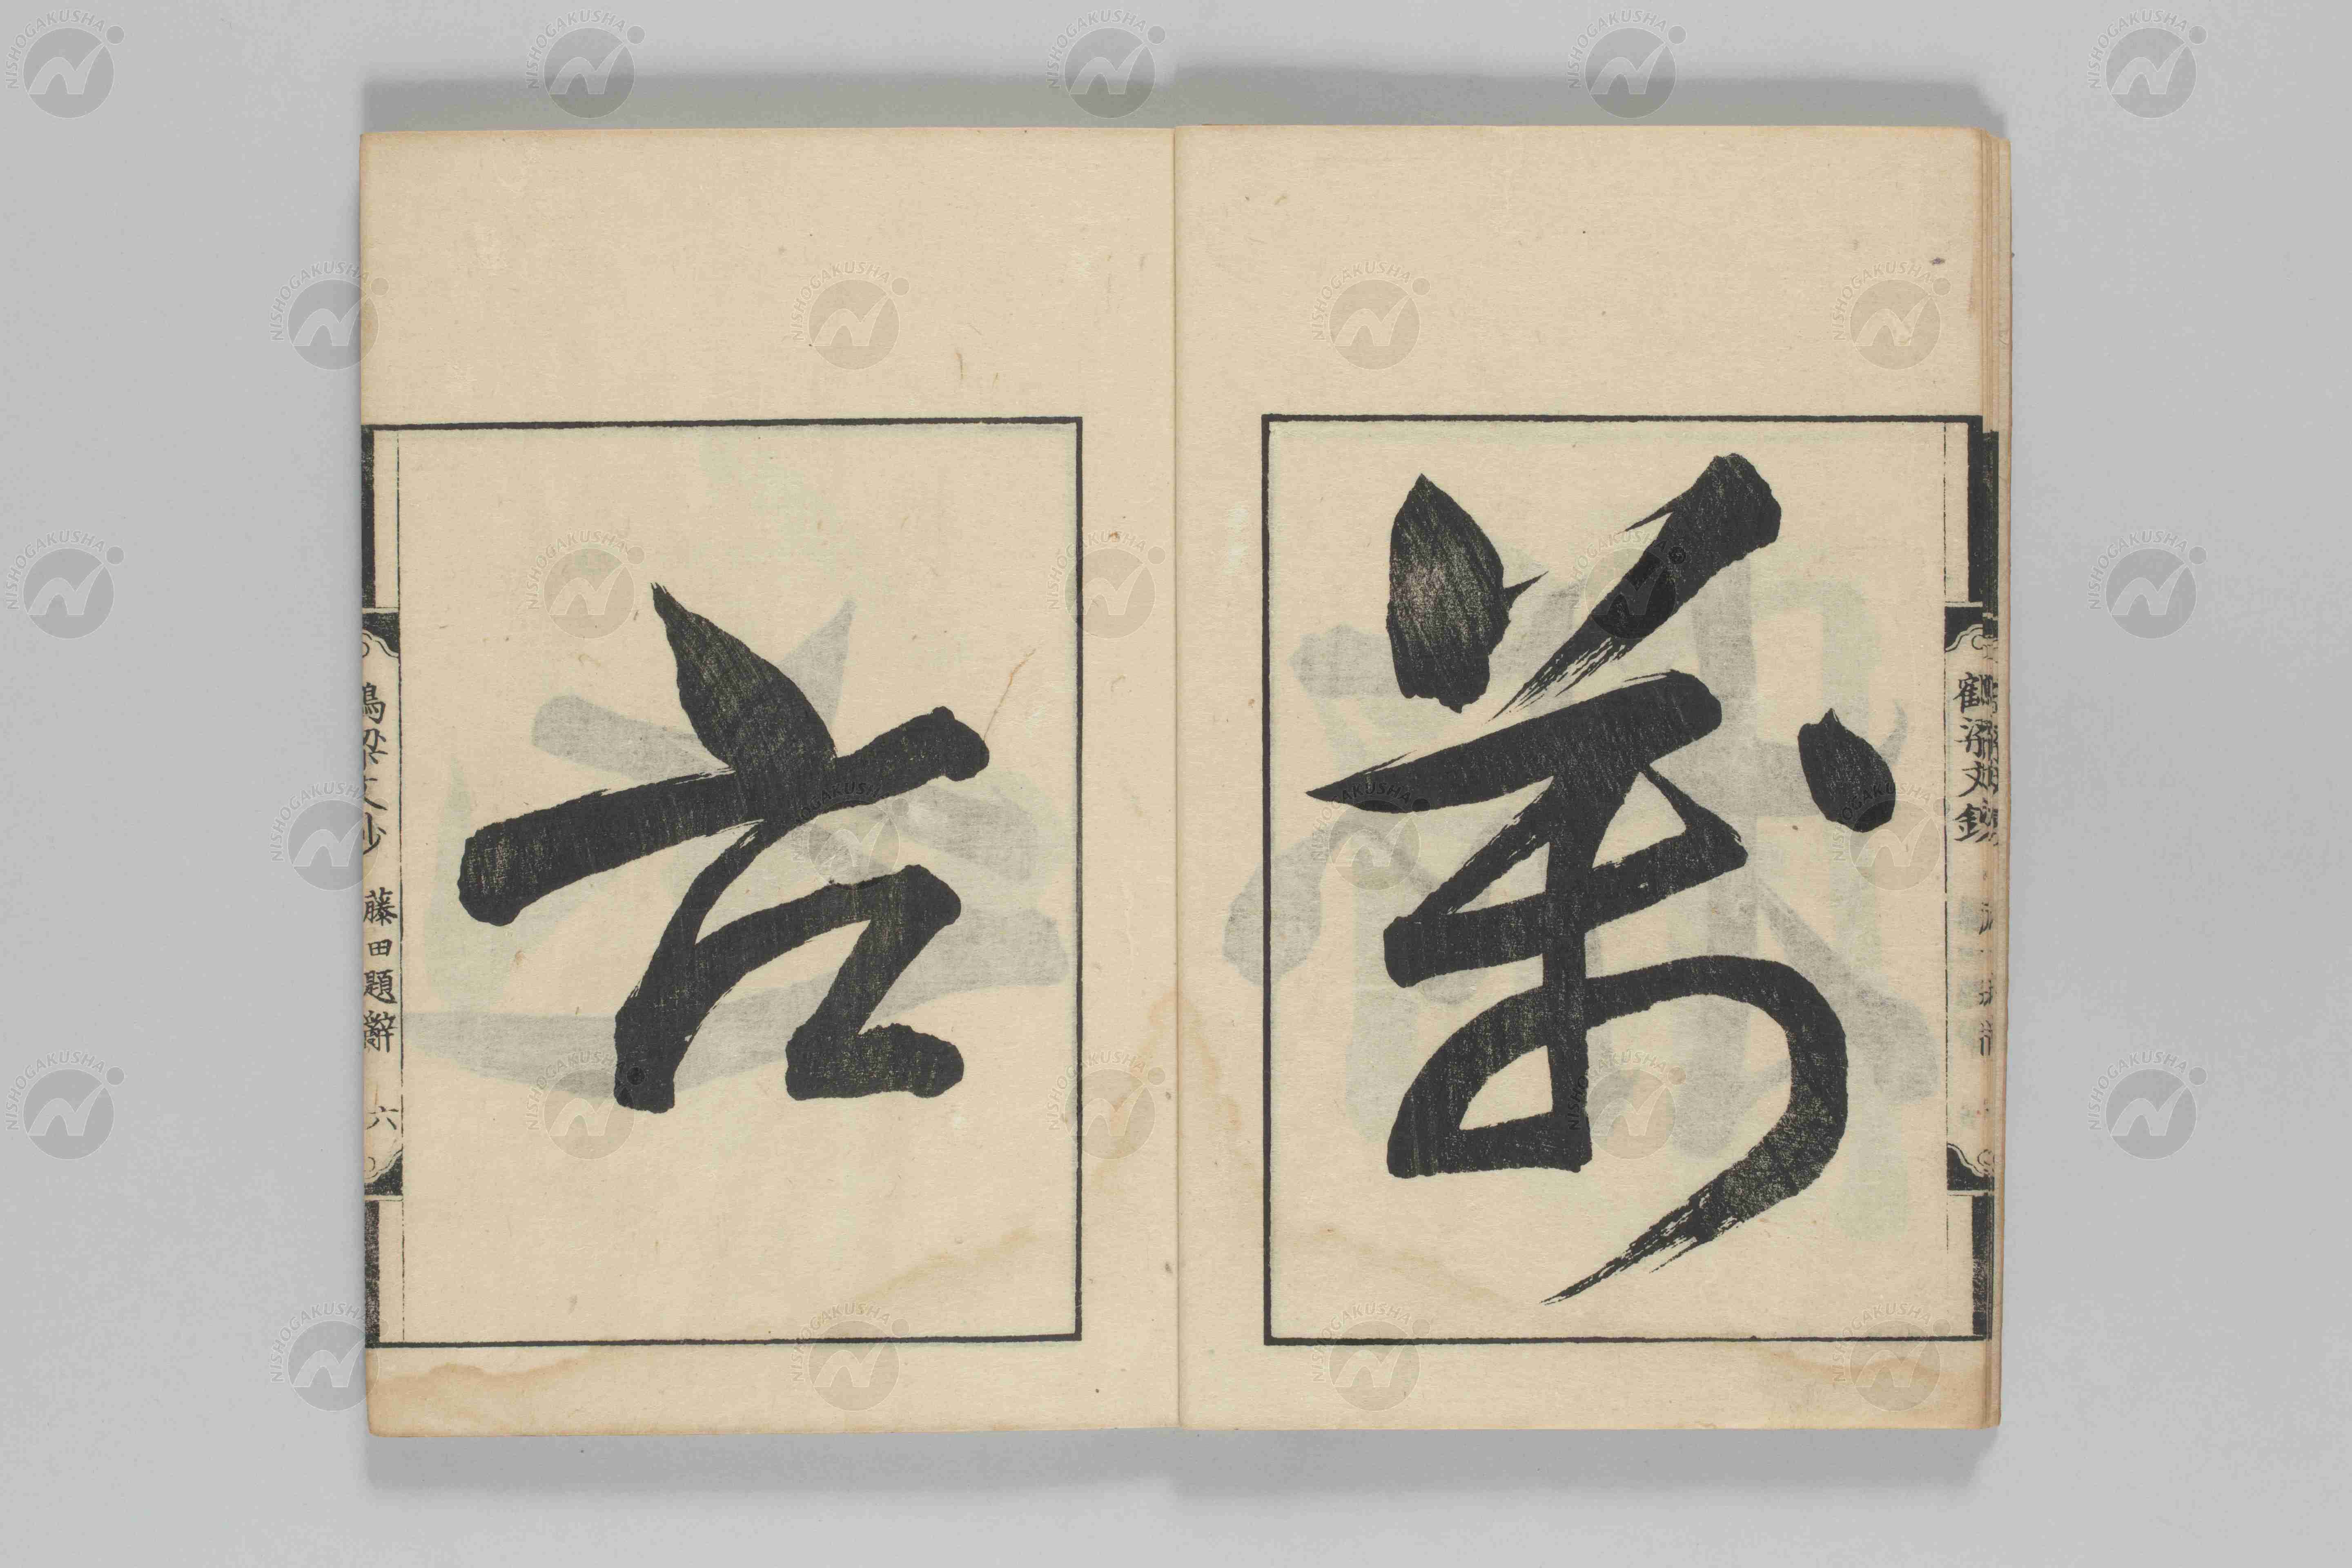 萬
古
鶴梁文鈔
鶴梁文鈔 藤田題辭 六
NISHOGAKUSHA